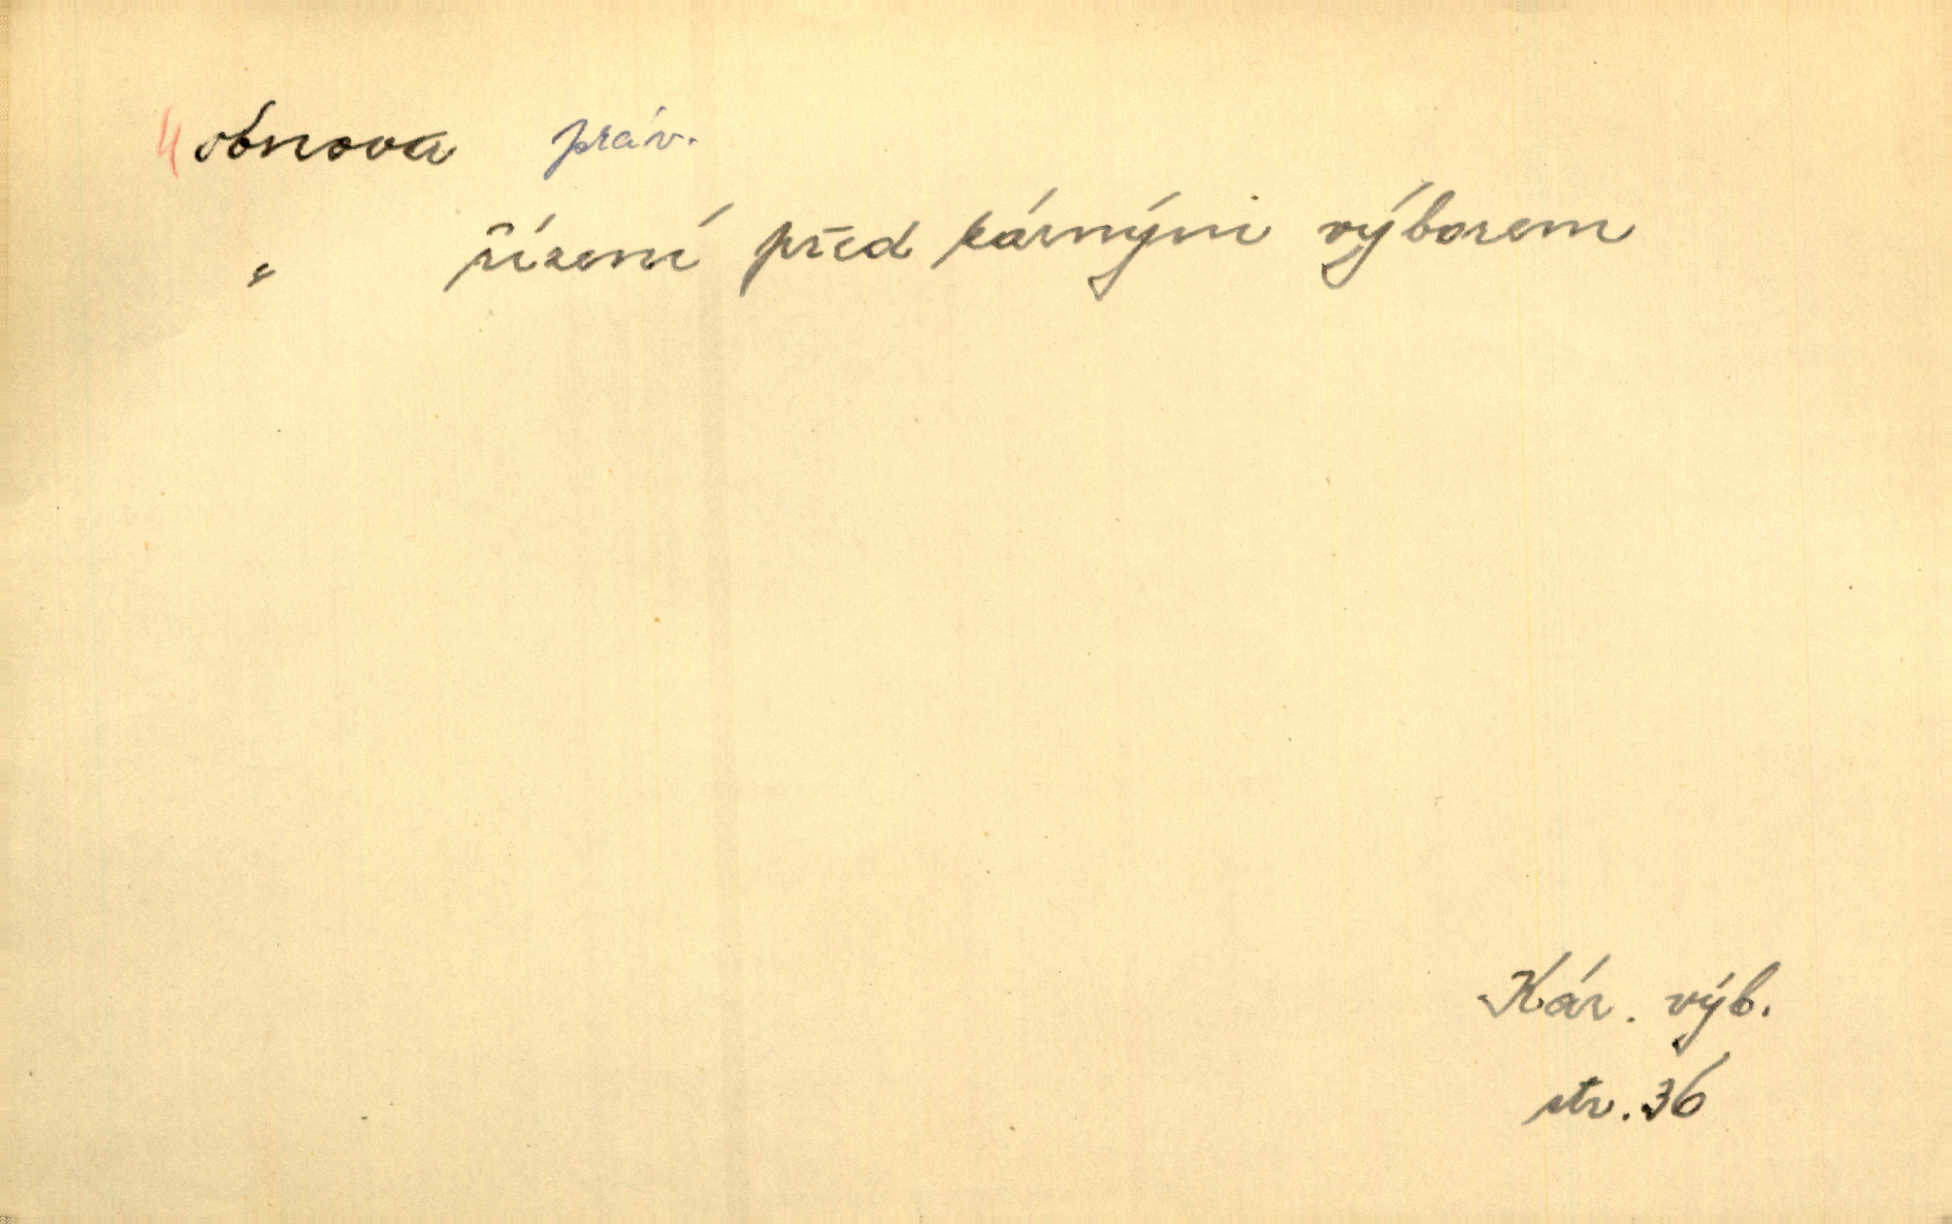 obnova práv.
„ řízení před kárným výborem
Kár. výb.
str. 36